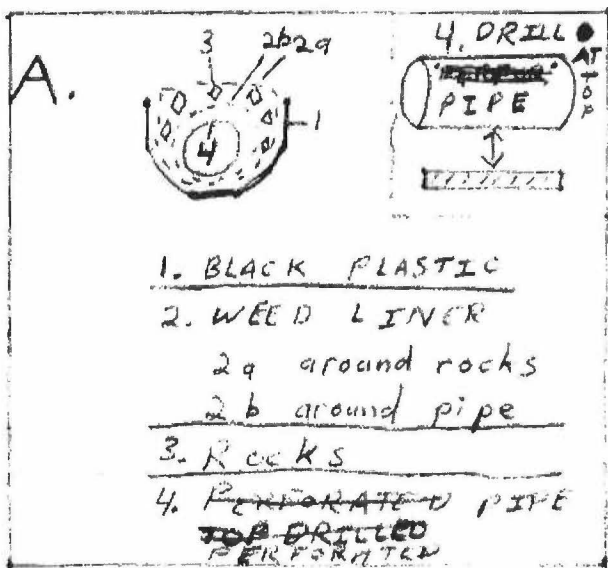 A.
3 2b 2a
4
1
4. DRILL ●
AT TOP
PIPE
1. BLACK PLASTIC
2. WEED LINER
2a around rocks
2b around pipe
3. Rocks
4. PERFORATED PIPE
TOP DRILLED
PERFORATED